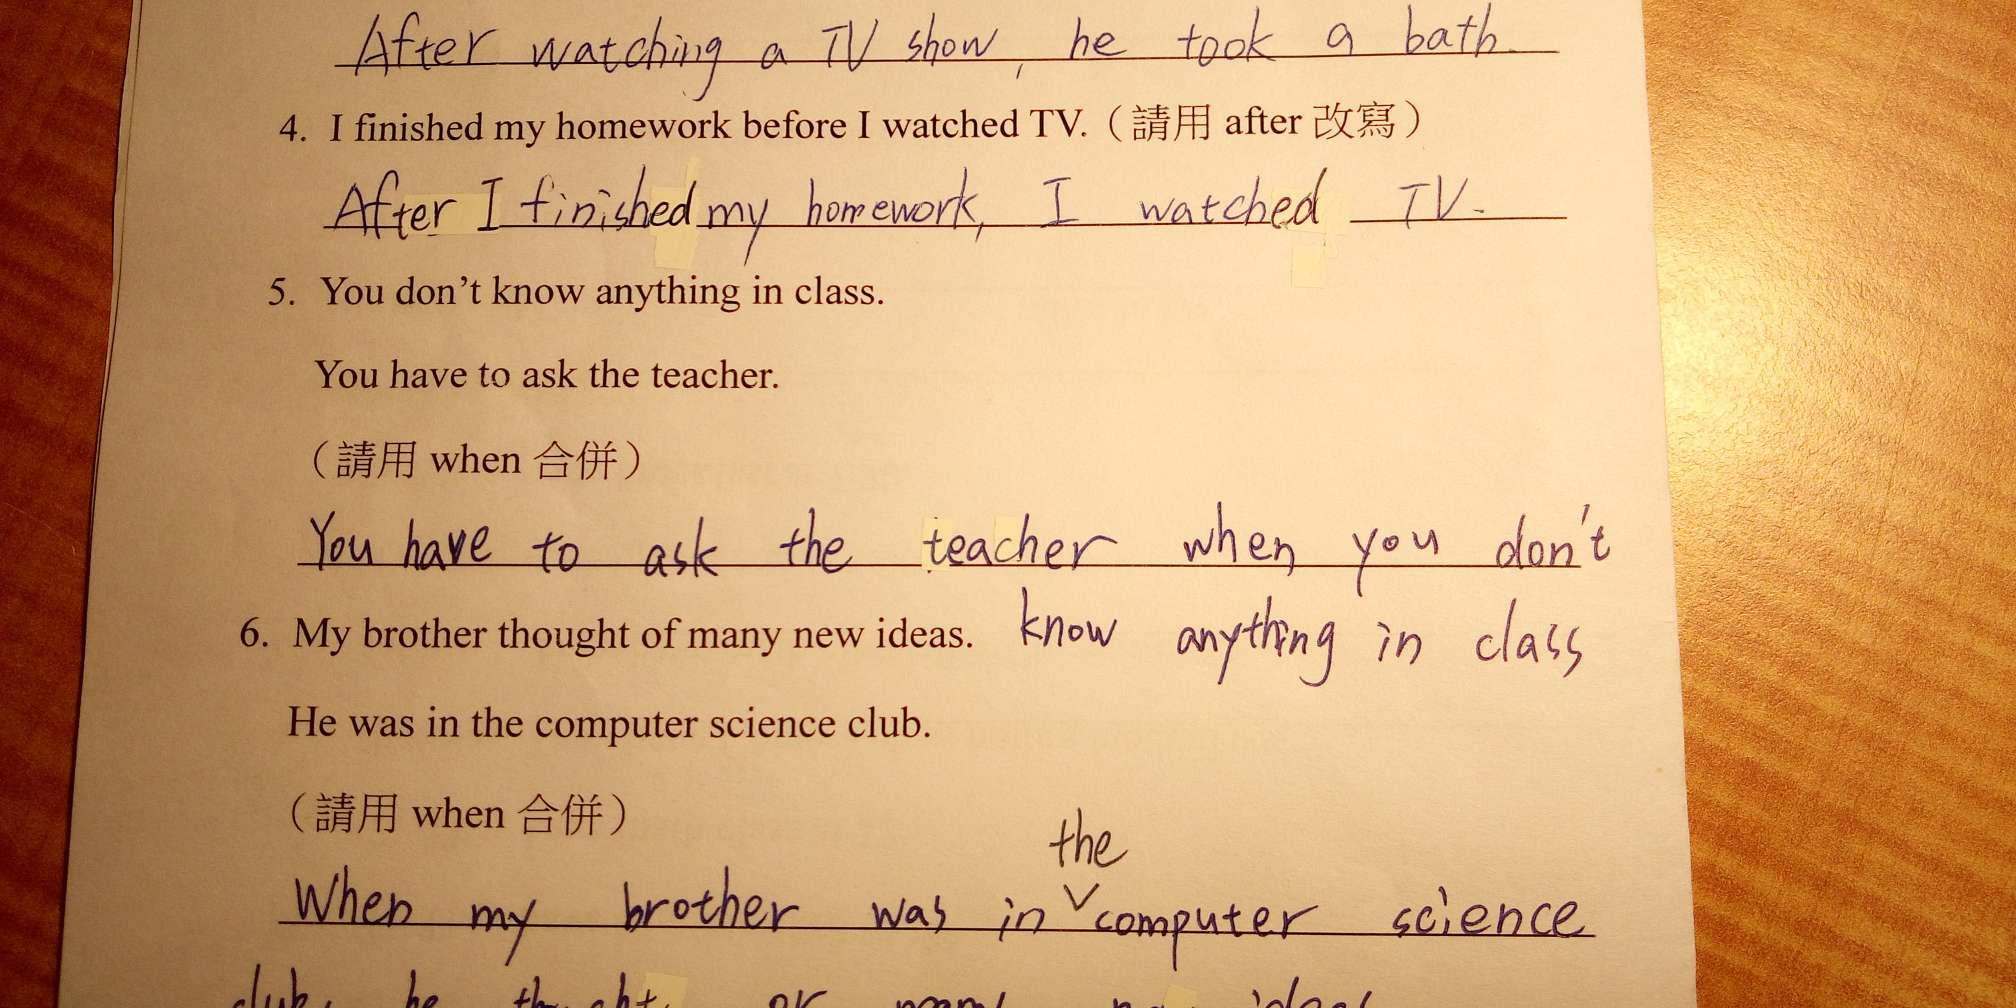 After watching a TV show, he took a bath.
4. I finished my homework before I watched TV.（請用 after 改寫）
After I finished my homework, I watched TV.
5. You don't know anything in class.
You have to ask the teacher.
（請用 when 合併）
You have to ask the teacher when you don't
know anything in class
6. My brother thought of many new ideas.
He was in the computer science club.
（請用 when 合併）
the
When my brother was in computer science
club, he thought